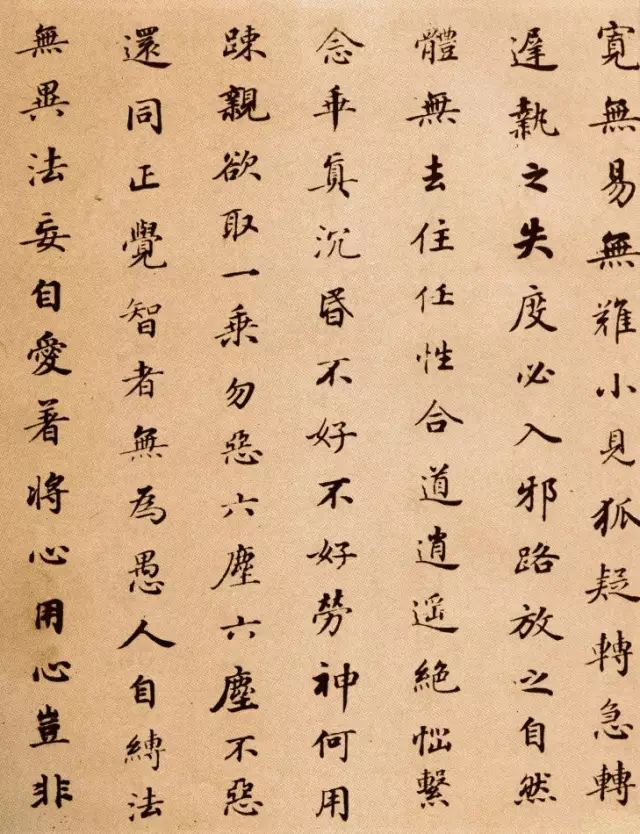 寬無易無難小見狐疑轉急轉
遲執之失度必入邪路放之自然
體無去住任性合道逍遥絶惱繫
念乖真沉昬不好不好勞神何用
踈親欲取一乗勿惡六塵六塵不惡
還同正覺智者無為愚人自縛法
無異法妄自愛著将心用心豈非